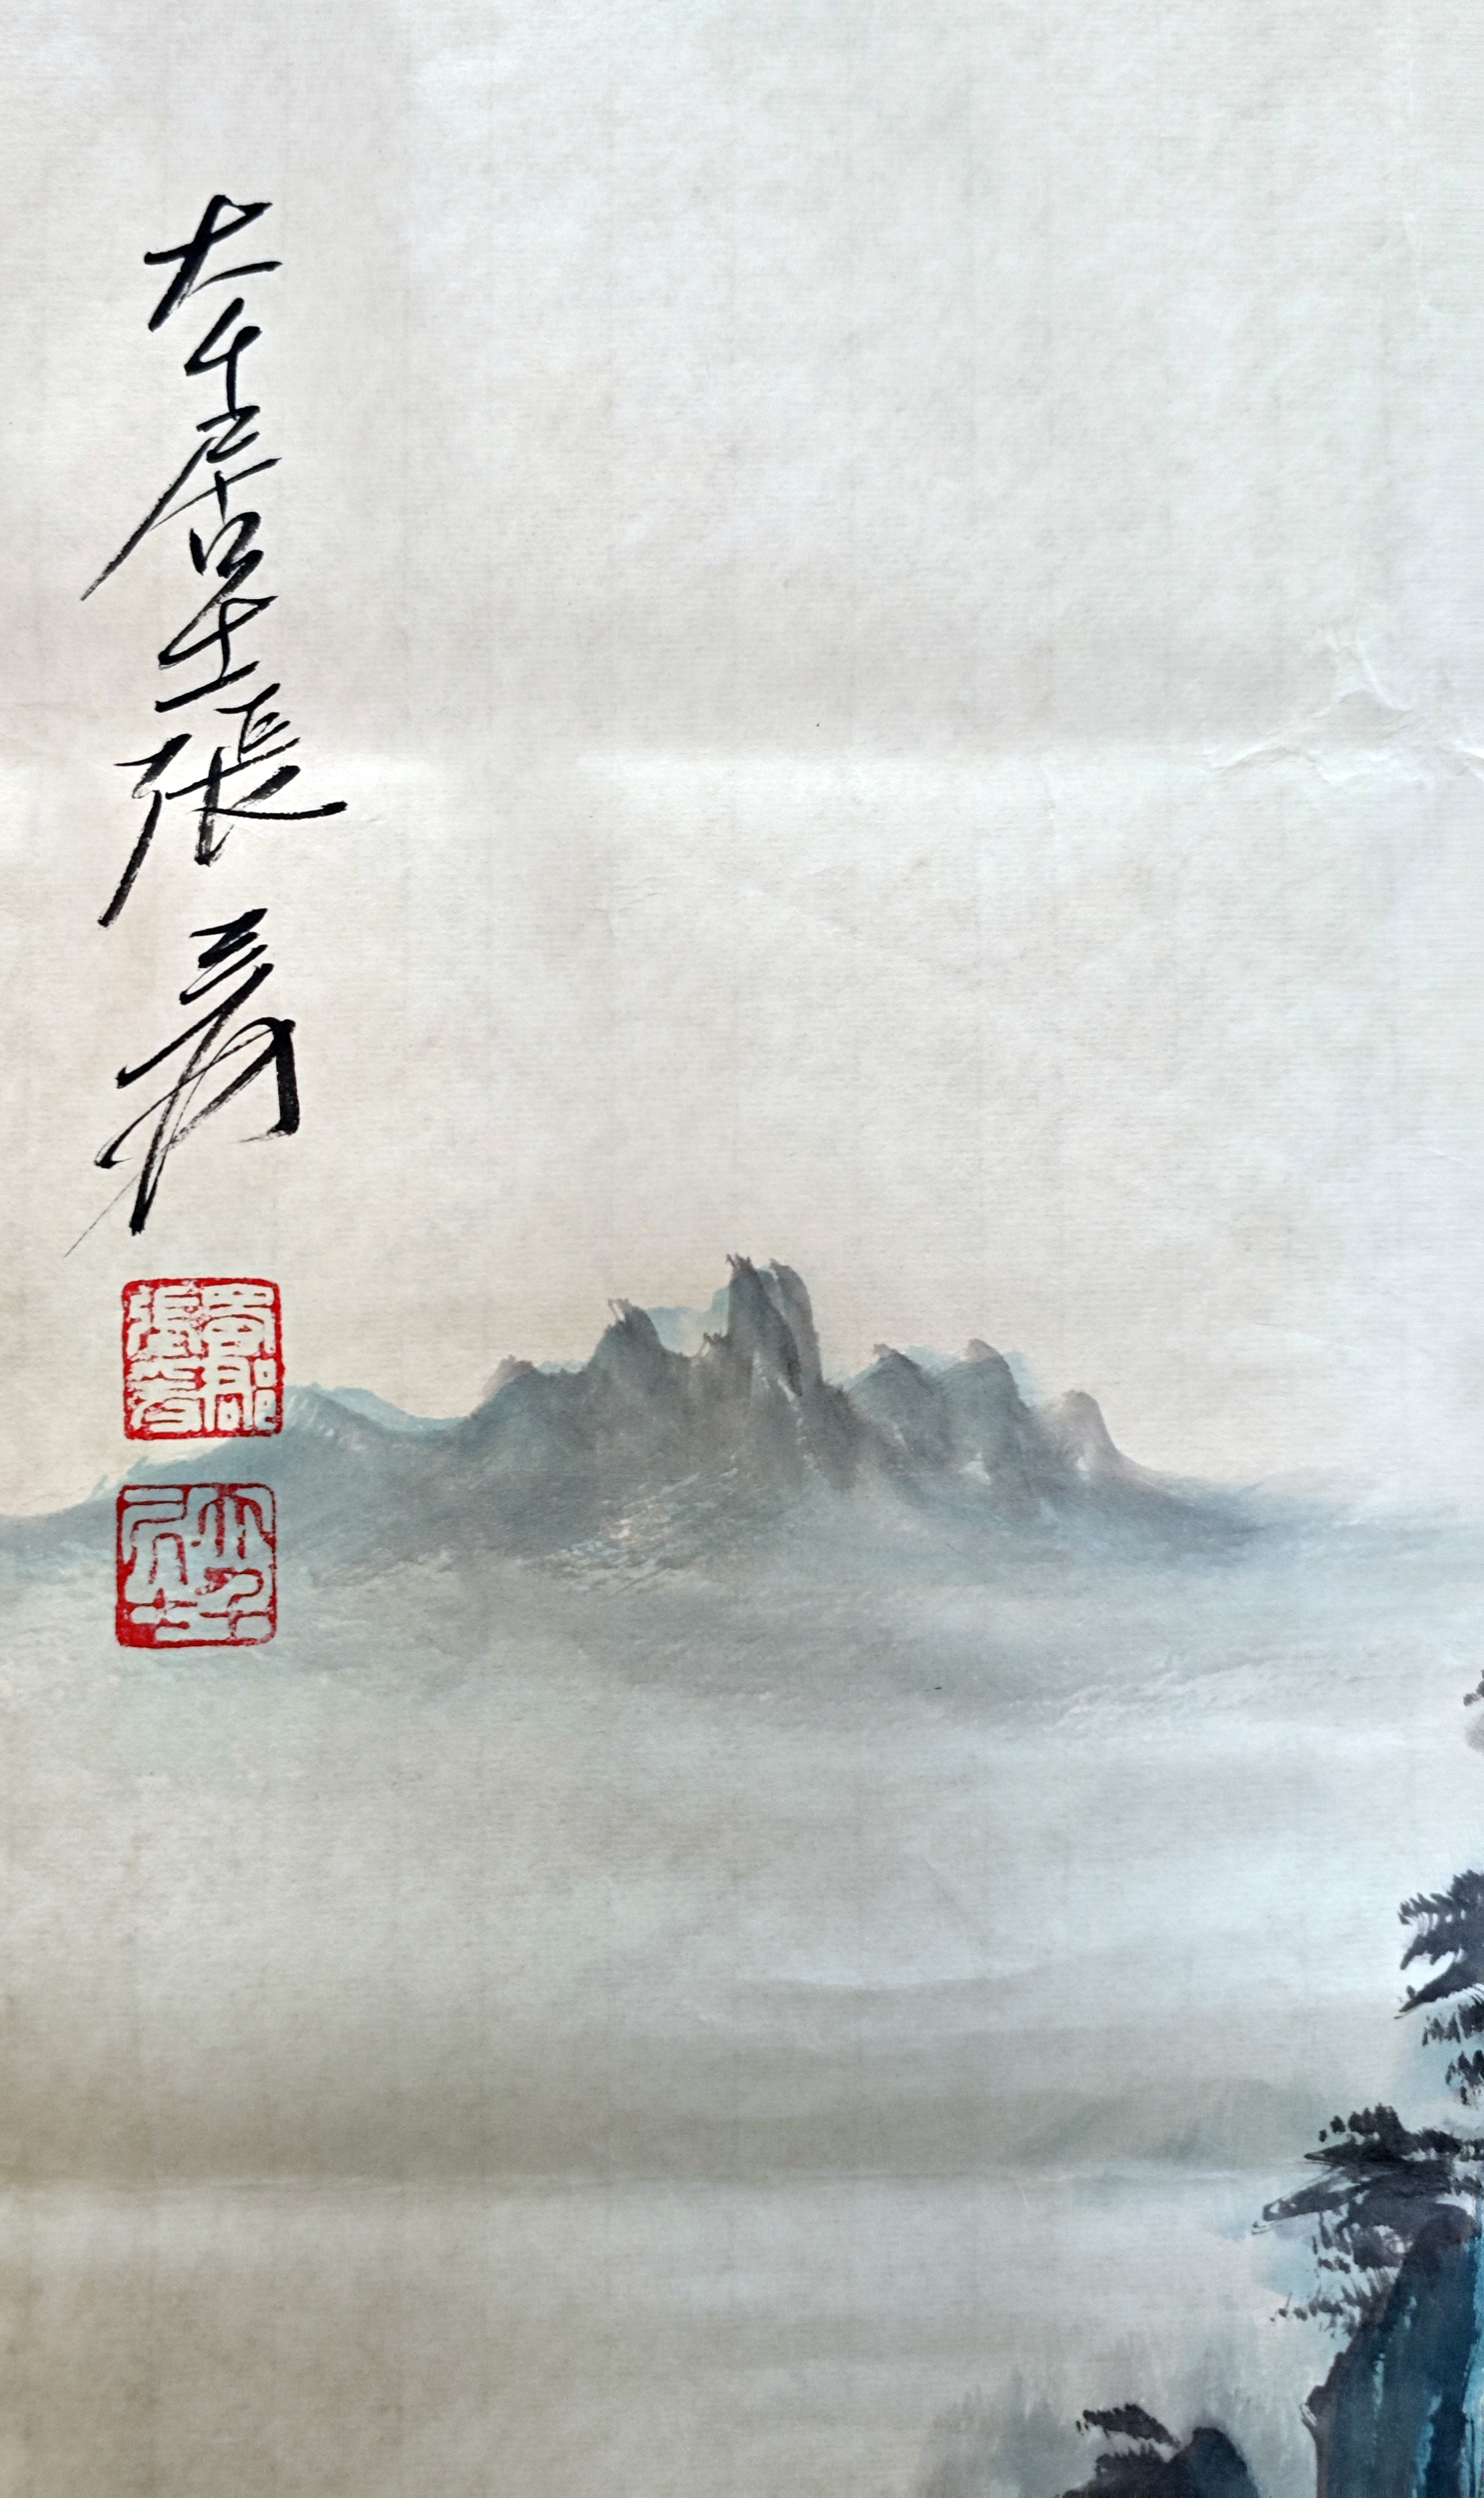 大千居士張爰
蜀郡張爰